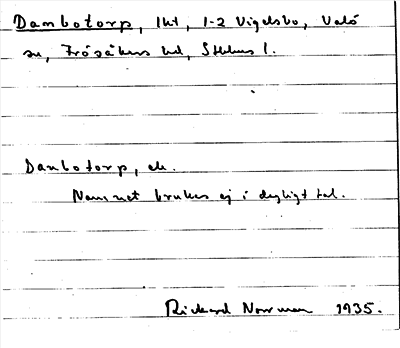 Dambotorp, lht, 1-2 Vigelsbo, Valö
sn, Frösåkers hd, Sthlms l.
Dambotorp, ck.
Namnet brukas ej i dagligt tal.
Rickard Norrman 1935.